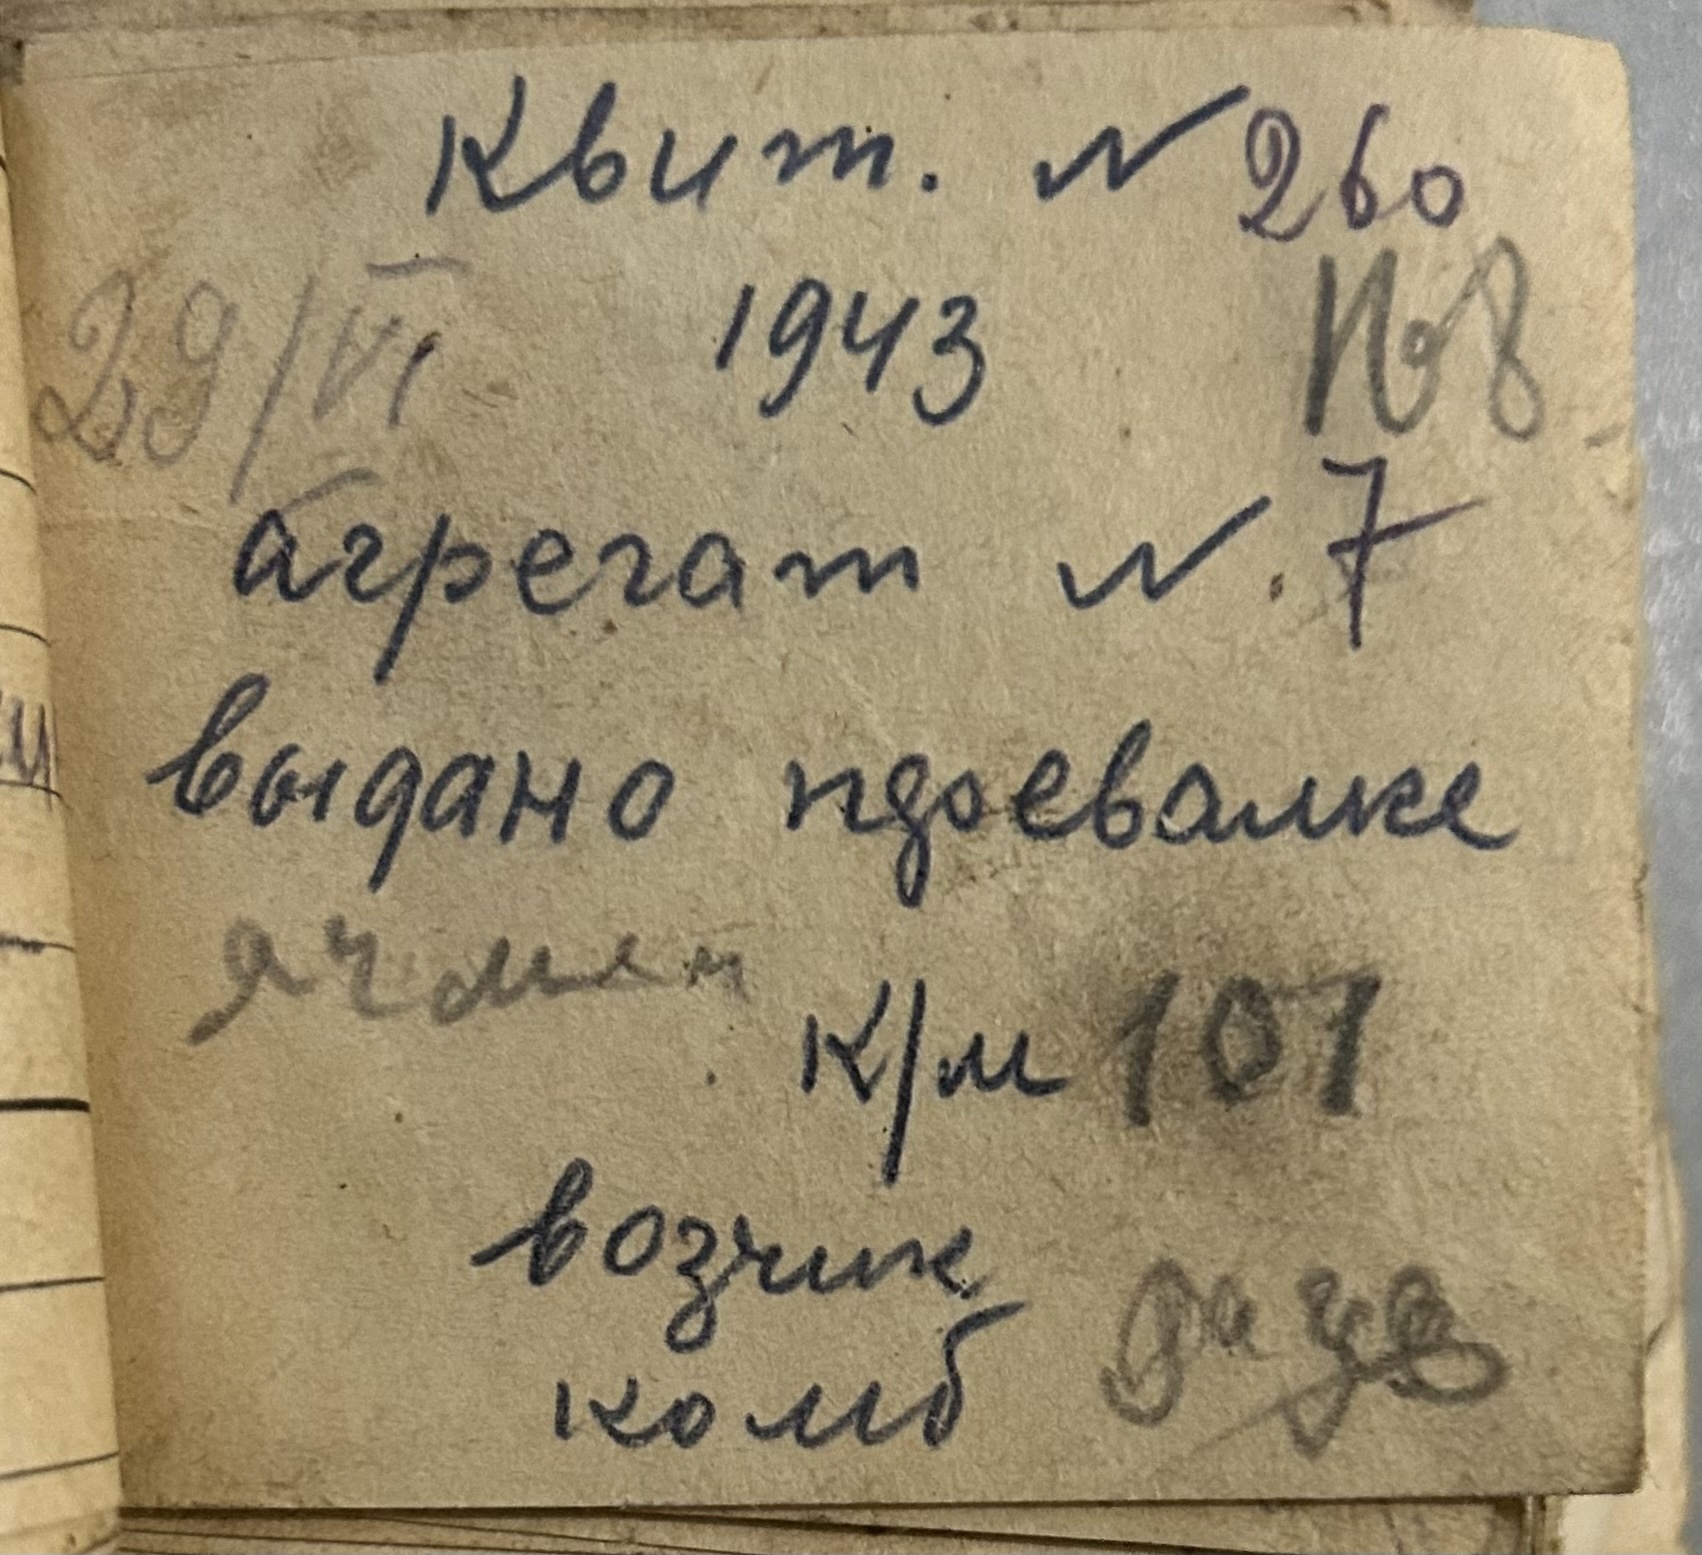 Квит. N 260
29/VI 1943 № 8
агрегат N. 7
выдано
ячмен
к/м 101
возчик
комб